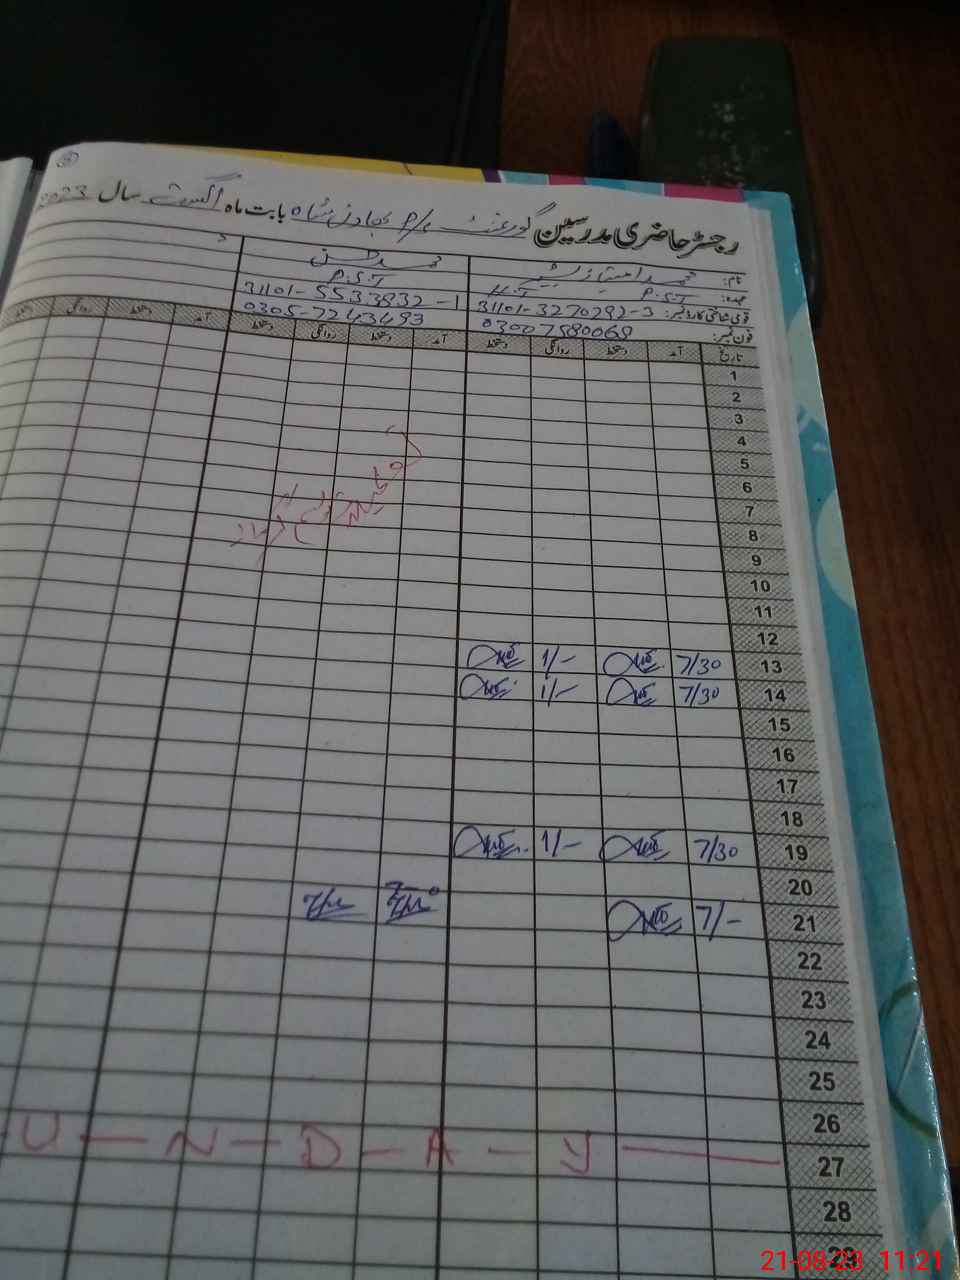 رجسٹر حاضری مدرسین گورنمنٹ P/S بہاون شاہ بابت ماہ اگست سال 2023
نام: محمد امتیاز
عہدہ: P.S.T H.T P.S.T
قومی شناختی کارڈ نمبر: 31101-3270292-3 31101-5533932-1
فون نمبر: 03007580068 0305-7243493
تاریخ آمد دستخط روانگی دستخط آمد دستخط روانگی دستخط آمد دستخط روانگی دستخط
1
2
3
4
5
6
7
8
9
10
11
12
13 7/30 1/-
14 7/30 1/-
15
16
17
18
19 7/30 1/-
20
21 7/-
22
23
24
25
26
27 U — N — D — A — Y
28
29
21-08-23 11:21